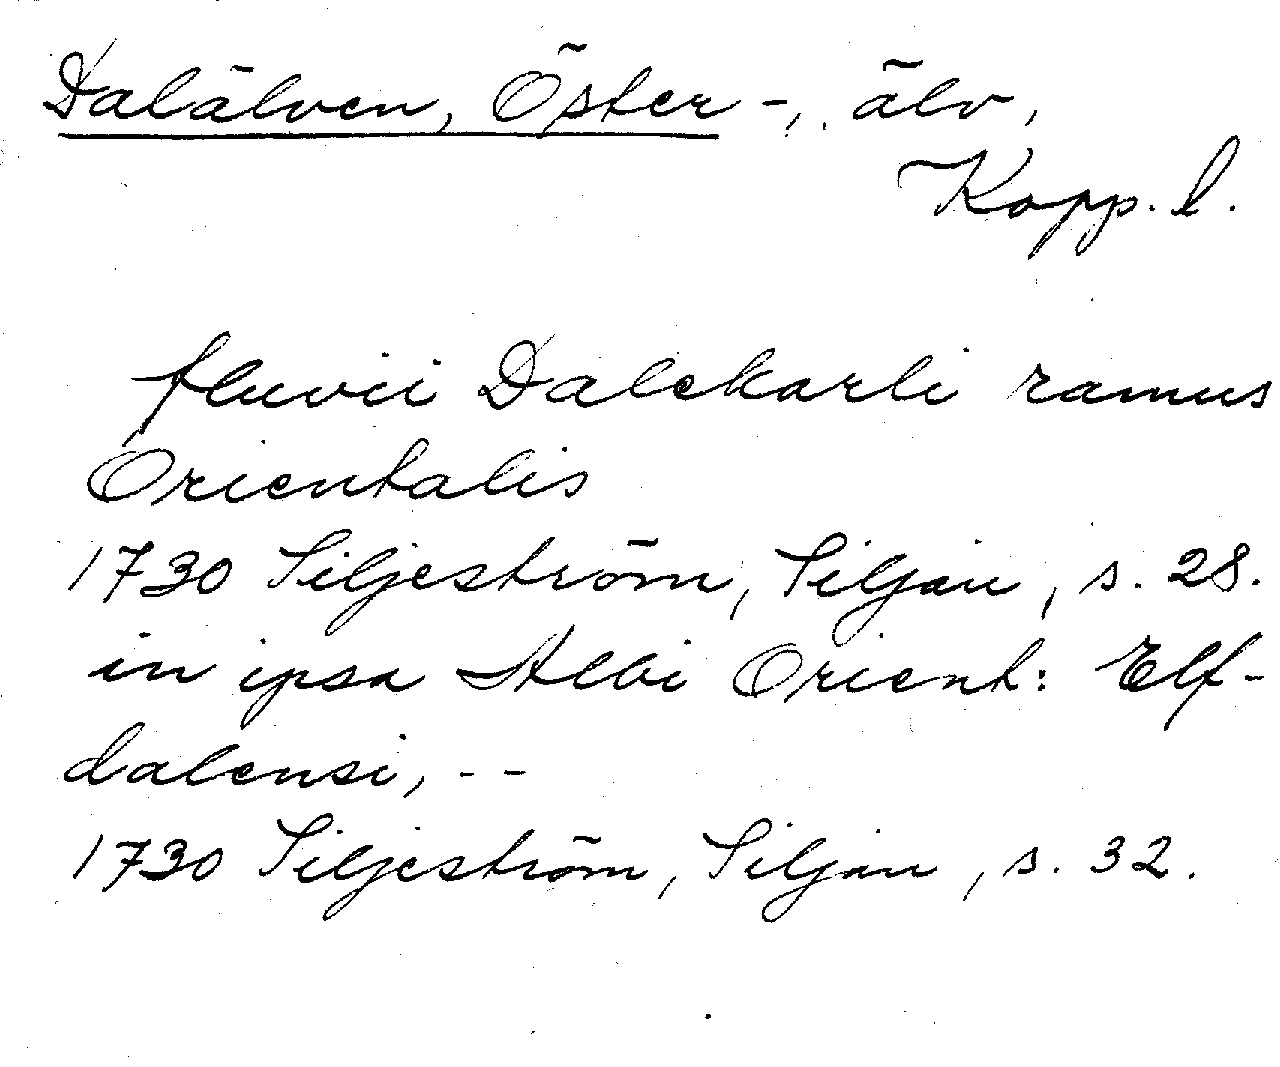 Dalälven, Öster-, älv,
Kopp. l.
fluvii Dalekarli ramus
Orientalis
1730 Siljeström, Siljan, s. 28.
in ipsa Albi Orient: Elf-
dalensi, --
1730 Siljeström, Siljan, s. 32.